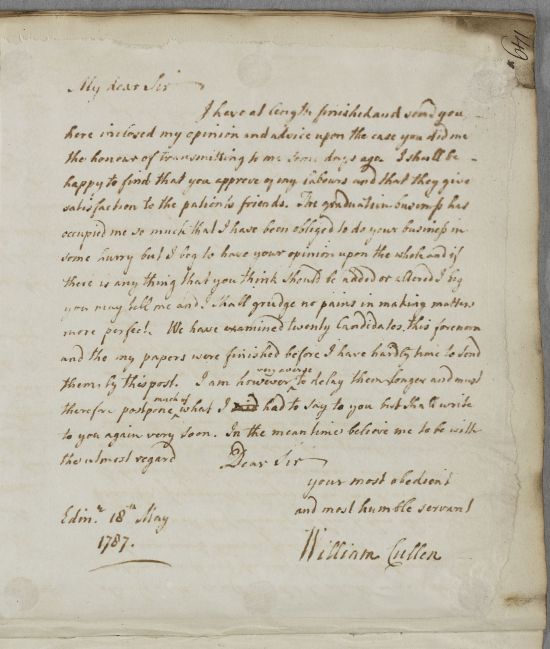 149
My dear Sir
I have at length finished and send you
here inclosed my opinion and advice upon the case you did me
the honour of transmitting to me some days ago. I shall be
happy to find that you approve of my labours and that they give
satisfaction to the patients friends. The graduation business has
occupied me so much that I have been obliged to do your business in
some hurry but I beg to have your opinion upon the whole and if
there is any thing that you think should be added or altered I beg
you may tell me and I shall grudge no pains in making matters
more perfect. We have examined twenty Candidates this forenoon
and tho my papers were finished before I have hardly time to send
them by this post. I am however very averse to delay them longer and must
therefore postpone much of what I had to say to you but shall write
to you again very soon. In the mean time believe me to be with
the utmost regard Dear Sir
your most obedient
and most humble servant
Edinr. 18th May
1787.
William Cullen